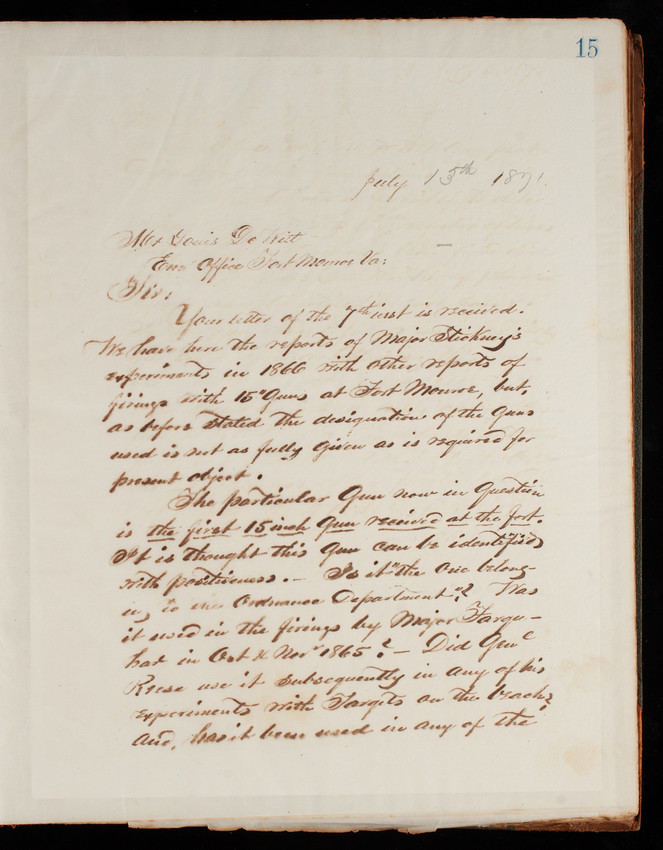 15
July 13th 1871.
Mr Louis De Witt
Eng Office Fort Monroe Va:
Sir:
Your letter of the 7th inst is received.
We have here the reports of Major Stickney's
experiments in 1866 with other reports of
firings with 15" Guns at Fort Monroe, but,
as before stated the designation of the Guns
used is not as fully given as is required for
present object.
The particular Gun now in Question
is the first 15 inch Gun received at the fort.
It is thought this Gun can be identified
with positiveness. — Is it "the one belong-
ing to the Ordnance Department"? Was
it used in the firings by Major Farqu-
har in Oct & Nov 1865? — Did Genl
Reese use it subsequently in any of his
experiments with Targets on the beach?
and, has it been used in any of the